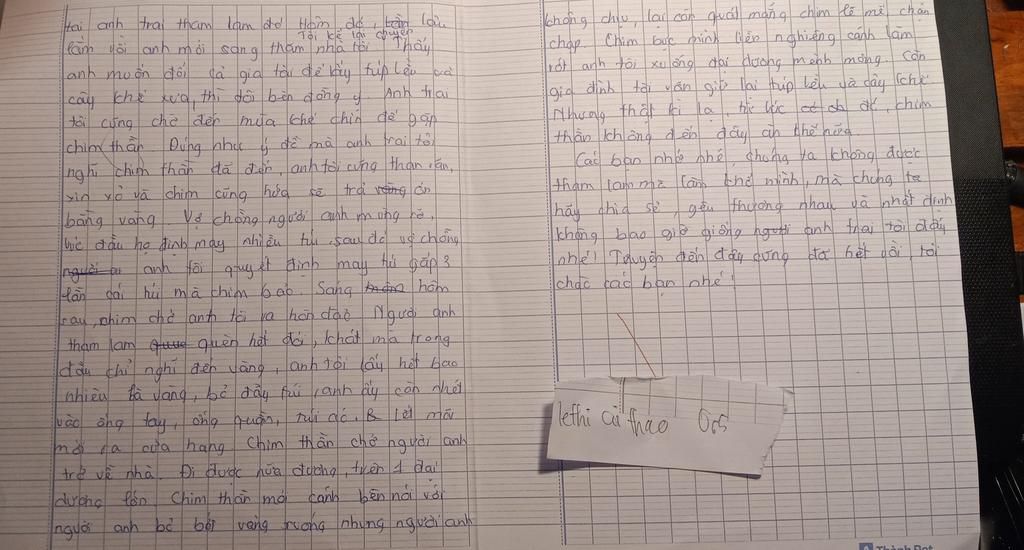 tai anh trai tham lam đó Hôm đó, lâu
Tôi kể lại chuyện
lắm rồi anh mới sang thăm nhà tôi Thấy
anh muốn đổi cả gia tài để lấy túp lều và
cây khế xưa, thì tôi bèn đồng ý. Anh trai
tôi cũng chờ đến mùa khế chín để gặp
chim thần Đúng như ý đồ mà anh trai tôi
nghĩ chim thần đã đến, anh tôi cũng than vãn,
xin xỏ và chim cũng hứa sẽ trả ơn
bằng vàng. Vợ chồng người anh mừng rỡ,
lúc đầu họ định may nhiều túi sau đó vợ chồng
anh tôi quyết định may túi gấp 3
lần cái túi mà chim bảo. Sáng hôm
sau, chim chở anh tôi ra hòn đảo Người anh
tham lam quên hết đói, khát mà trong
đầu chỉ nghĩ đến vàng, anh tôi lấy hết bao
nhiêu là vàng, bỏ đầy túi, anh ấy còn nhét
vào ống tay, ống quần, túi áo. Lết mãi
mới ra cửa hang Chim thần chở người anh
trở về nhà. Đi được nửa đường, trên 1 đại
dương lớn Chim thần mỏi cánh bèn nói với
người anh bỏ bớt vàng xuống nhưng người anh
không chịu, lại còn quát mắng chim lề mề chậm
chạp. Chim bực mình liền nghiêng cánh làm
rớt anh tôi xuống đại dương mênh mông. Còn
gia đình tôi vẫn giữ lại túp lều và cây khế
Nhưng thật kì lạ, từ lúc đó, chim
thần không đến đây ăn khế nữa.
Các bạn nhớ nhé, chúng ta không được
tham lam mà làm khổ mình, mà chúng ta
hãy chia sẻ, yêu thương nhau và nhất định
không bao giờ giống người anh trai tôi đấy
nhé! Truyện đến đây cũng đã hết rồi, tôi
chào các bạn nhé!
lethi cù thao 065
Thành Đạt